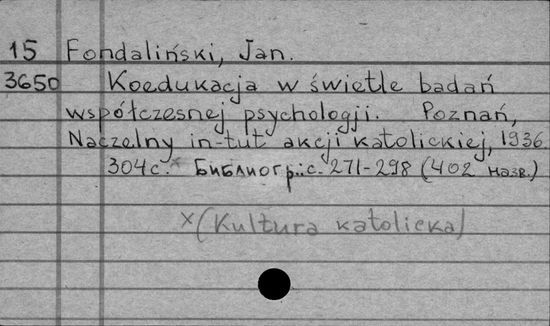 15 Fondaliński, Jan.
3650 Koedukacja w świetle badań
współczesnej psychologji. Poznań,
Naczelny in-tut akcji katolickiej, 1936.
304 с.* Библиогр.: с. 271-298 (402 назв.)
x (Kultura katolicka)